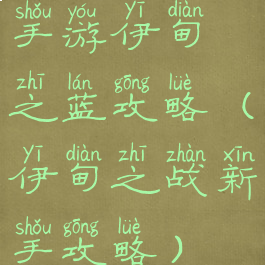 shǒu yóu yī diàn
手游伊甸
zhī lán gōng lüè
之蓝攻略（
yī diàn zhī zhàn xīn
伊甸之战新
shǒu gōng lüè
手攻略）